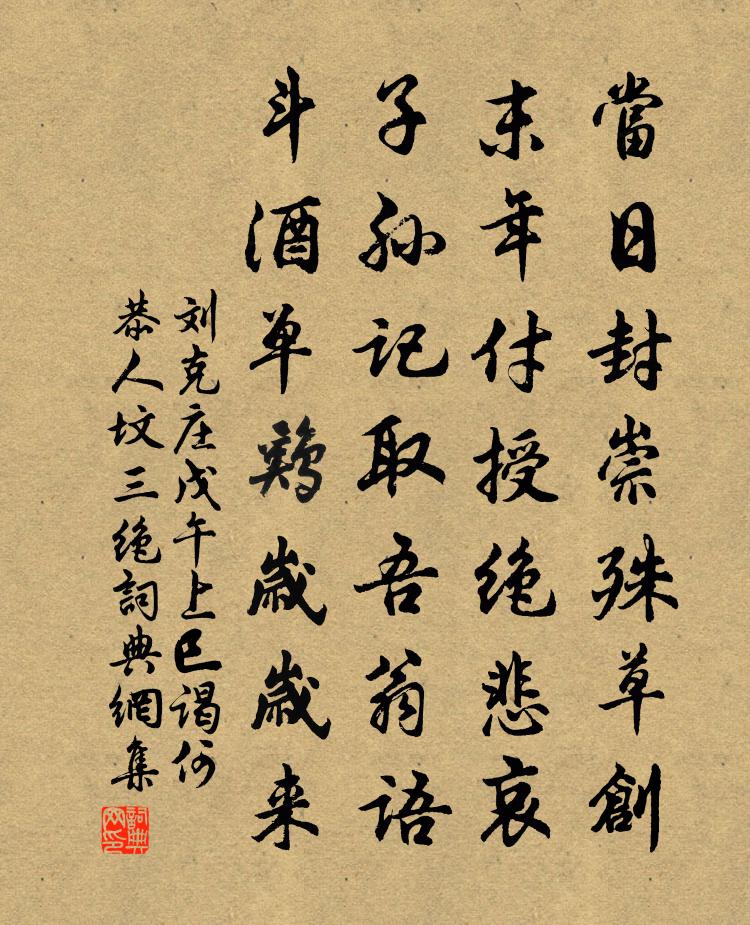 當日封崇殊草創
末年付授绝悲哀
子孙記取吾翁語
斗酒单鷄歲歲来
刘克庄戊午上巳謁何
恭人坟三绝詞典網集
詞典网印